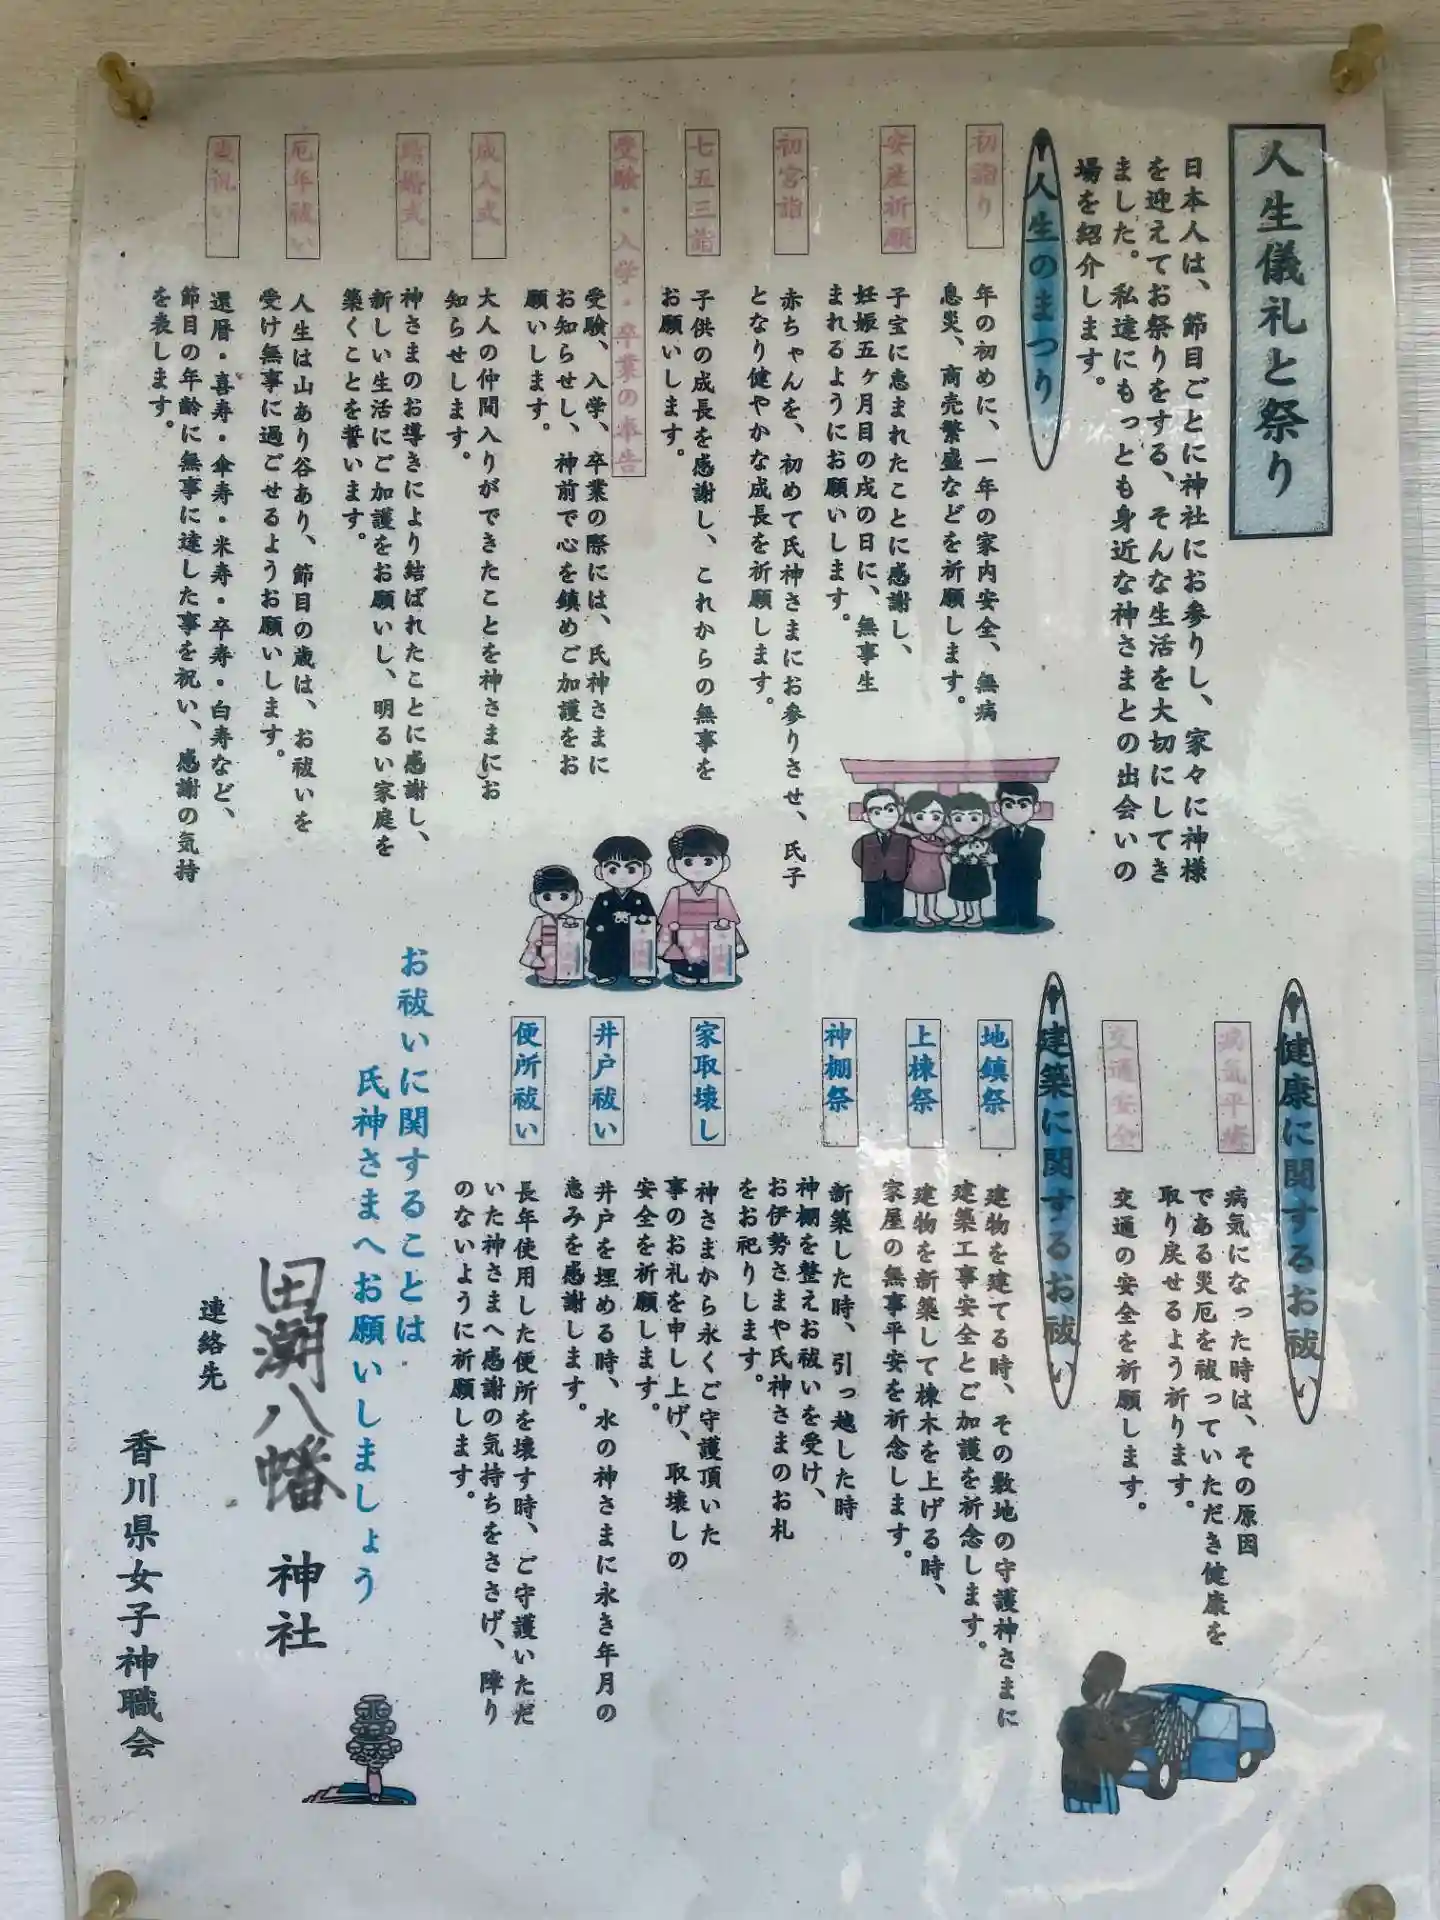 人生儀礼と祭り
日本人は、節目ごとに神社にお参りし、家々に神様
を迎えてお祭りをする、そんな生活を大切にしてき
ました。私達にもっとも身近な神さまとの出会いの
場を紹介します。
人生のまつり
初詣り
年の初めに、一年の家内安全、無病
息災、商売繁盛などを祈願します。
安産祈願
子宝に恵まれたことに感謝し、
妊娠五ヶ月目の戌の日に、無事生
まれるようにお願いします。
初宮詣
赤ちゃんを、初めて氏神さまにお参りさせ、氏子
となり健やかな成長を祈願します。
七五三詣
子供の成長を感謝し、これからの無事を
お願いします。
受験・入学・卒業の奉告
受験、入学、卒業の際には、氏神さまに
お知らせし、神前で心を鎮めご加護をお
願いします。
成人式
大人の仲間入りができたことを神さまにお
知らせします。
結婚式
神さまのお導きにより結ばれたことに感謝し、
新しい生活にご加護をお願いし、明るい家庭を
築くことを誓います。
厄年祓い
人生は山あり谷あり、節目の歳は、お祓いを
受け無事に過ごせるようお願いします。
歳祝い
還暦・喜寿・傘寿・米寿・卒寿・白寿など、
節目の年齢に無事に達した事を祝い、感謝の気持
を表します。
健康に関するお祓い
病気平癒
病気になった時は、その原因
である災厄を祓っていただき健康を
取り戻せるよう祈ります。
交通安全
交通の安全を祈願します。
建築に関するお祓い
地鎮祭
建物を建てる時、その敷地の守護神さまに
建築工事安全とご加護を祈念します。
上棟祭
建物を新築して棟木を上げる時、
家屋の無事平安を祈念します。
神棚祭
新築した時、引っ越した時
神棚を整えお祓いを受け、
お伊勢さまや氏神さまのお札
をお祀りします。
家取壊し
神さまから永くご守護頂いた
事のお礼を申し上げ、取壊しの
安全を祈願します。
井戸祓い
井戸を埋める時、水の神さまに永き年月の
恵みを感謝します。
便所祓い
長年使用した便所を壊す時、ご守護いただ
いた神さまへ感謝の気持ちをささげ、障り
のないように祈願します。
お祓いに関することは
氏神さまへお願いしましょう
田潮八幡 神社
連絡先
香川県女子神職会